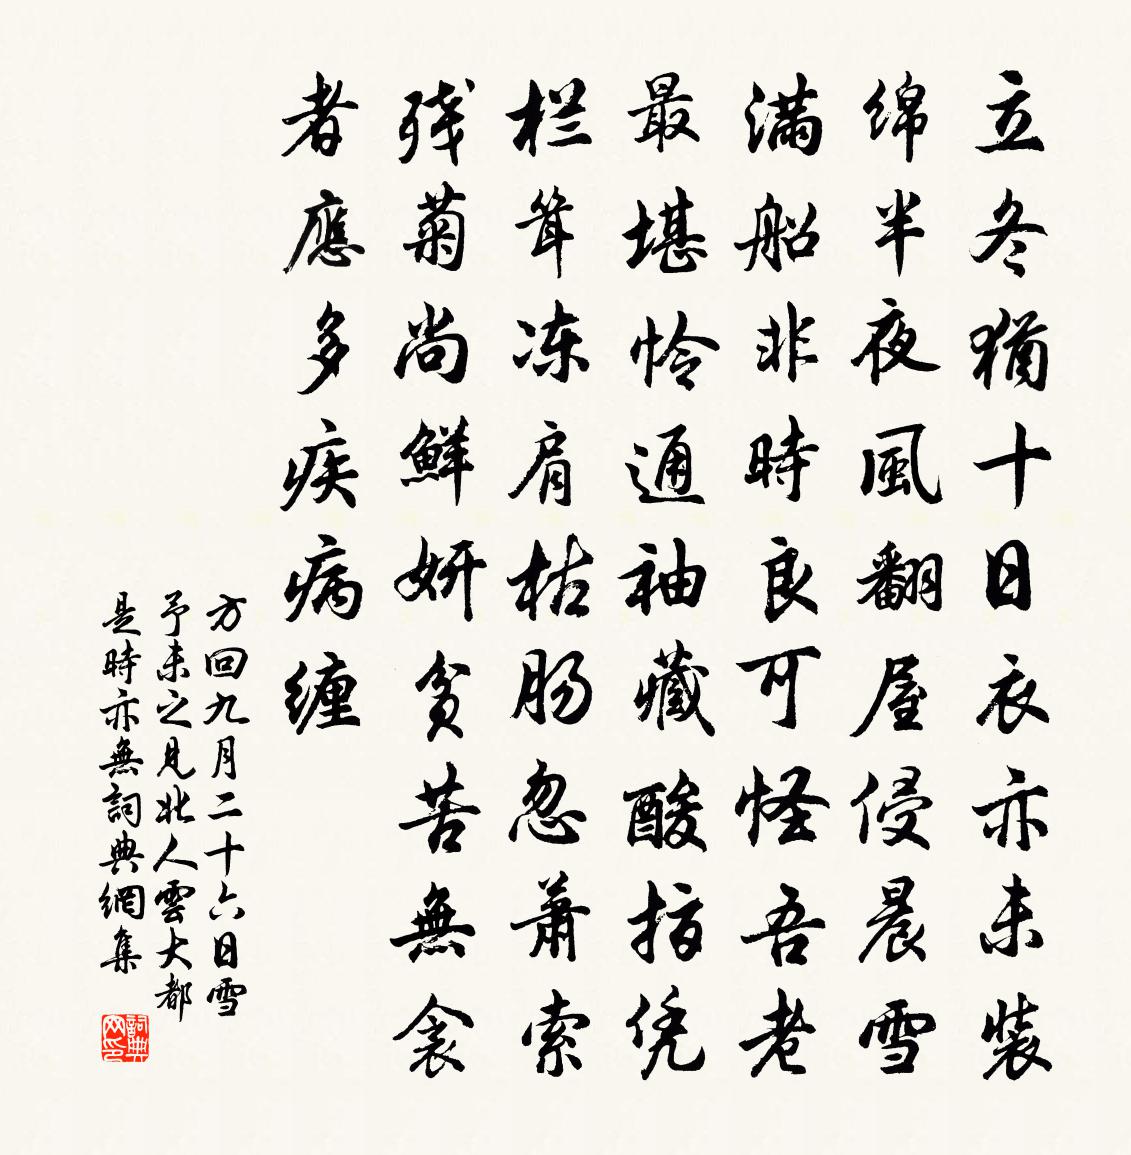 立冬犹十日衣亦未装
绵半夜風翻屋侵晨雪
满船非時良可怪吾老
最堪怜通袖藏酸指凭
栏耸冻肩枯肠忽萧索
残菊尚鮮妍貧苦無衾
者應多疾病缠
方回九月二十六日雪
予未之見北人雲大都
是時亦無詞典網集